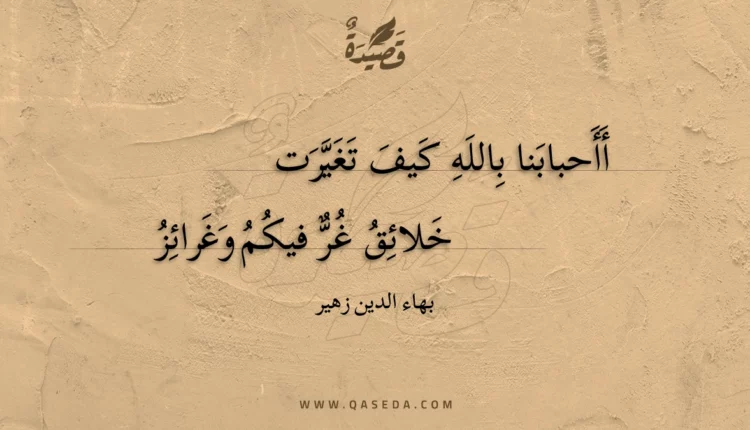 قَصِيْدَةٌ
أَأَحبابَنا بِاللَهِ كَيفَ تَغَيَّرَت
خَلائِقُ غُرٌّ فيكُمُ وَغَرائِزُ
بهاء الدين زهير
WWW.QASEDA.COM